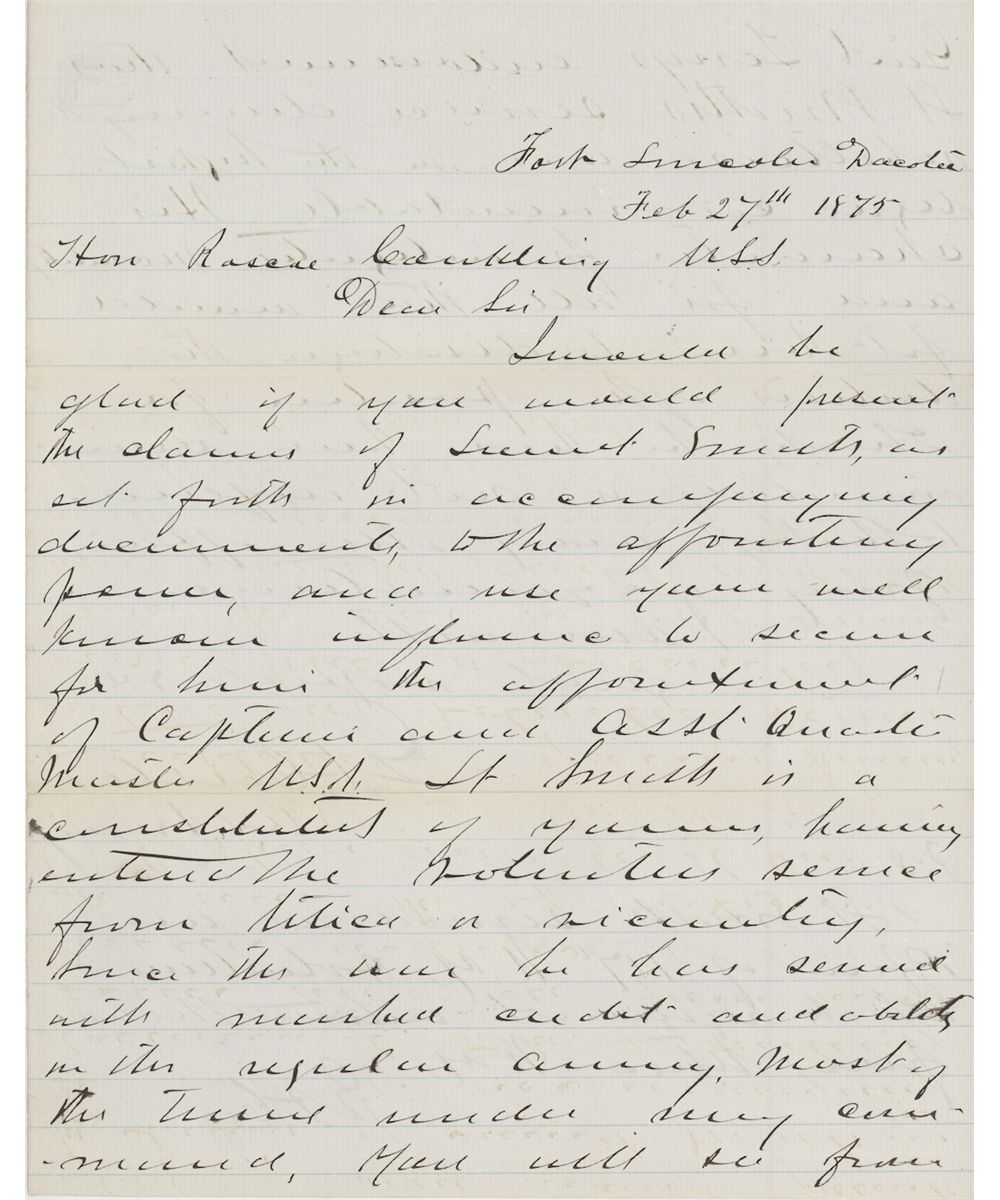 Fort Lincoln Dacota
Feb 27th 1875
Hon Roscoe Conkling U.S.S.
Dear Sir
I would be
glad if you would present
the claims of Lieut Smith, as
set forth in accompanying
documents, to the appointing
power, and use your well
known influence to secure
for him the appointment
of Captain and Asst Quarter
Master U.S.A. Lt Smith is a
constituent of yours, having
entered the Volunteer service
from Utica or vicinity,
Since the war he has served
with marked credit and ability
in the regular army, Most of
the time under my com-
-mand, You will see from